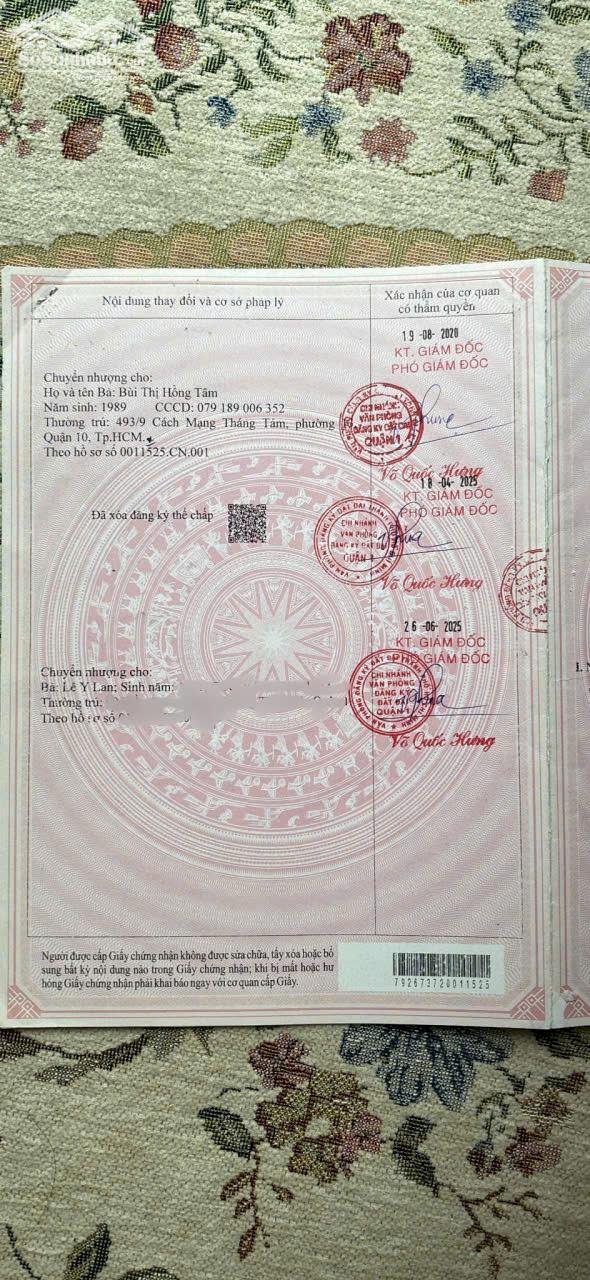 Nội dung thay đổi và cơ sở pháp lý
Xác nhận của cơ quan
có thẩm quyền
19 -08- 2020
KT. GIÁM ĐỐC
PHÓ GIÁM ĐỐC
Chuyển nhượng cho:
Họ và tên Bà: Bùi Thị Hồng Tâm
Năm sinh: 1989 CCCD: 079 189 006 352
Thường trú: 493/9 Cách Mạng Tháng Tám, phường
Quận 10, Tp.HCM.
Theo hồ sơ số 0011525.CN.001
CHI NHÁNH
VĂN PHÒNG
ĐĂNG KÝ ĐẤT ĐAI
QUẬN 1
Võ Quốc Hưng
18 -04- 2025
KT. GIÁM ĐỐC
PHÓ GIÁM ĐỐC
Đã xóa đăng ký thế chấp
CHI NHÁNH
VĂN PHÒNG
ĐĂNG KÝ ĐẤT ĐAI
QUẬN 1
Võ Quốc Hưng
26 -06- 2025
KT. GIÁM ĐỐC
PHÓ GIÁM ĐỐC
Chuyển nhượng cho:
Bà: Lê Ý Lan; Sinh năm:
Thường trú:
Theo hồ sơ số
CHI NHÁNH
VĂN PHÒNG
ĐĂNG KÝ
ĐẤT ĐAI
QUẬN 1
Võ Quốc Hưng
1.
Người được cấp Giấy chứng nhận không được sửa chữa, tẩy xóa hoặc bổ
sung bất kỳ nội dung nào trong Giấy chứng nhận; khi bị mất hoặc hư
hỏng Giấy chứng nhận phải khai báo ngay với cơ quan cấp Giấy.
792673720011525